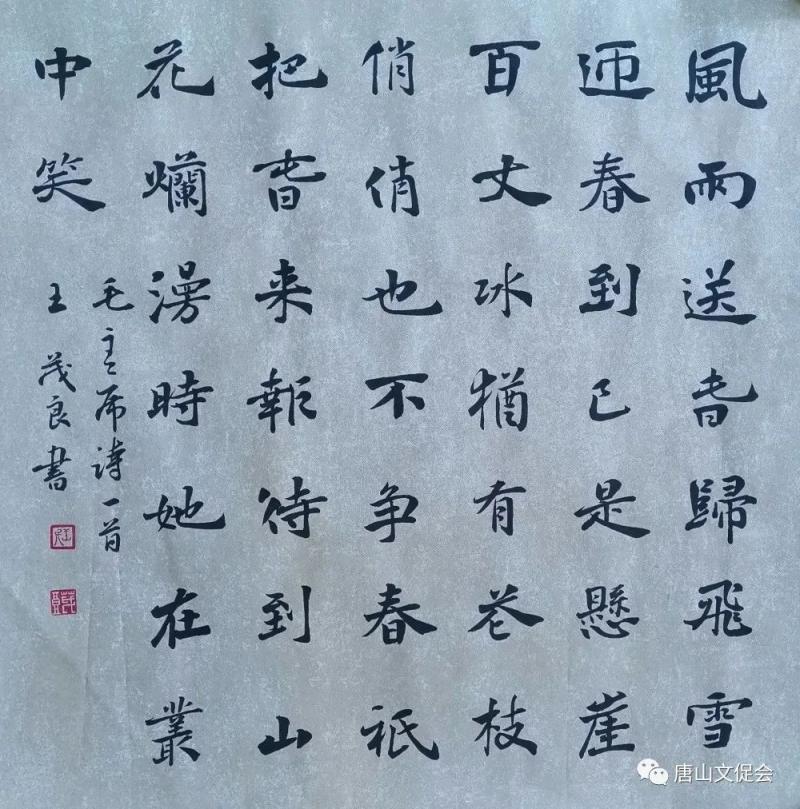 風雨送旾歸飛雪
迎春到已是懸崖
百丈冰猶有花枝
俏俏也不争春祇
把旾来報待到山
花爛漫時她在叢
中笑
毛主席詩一首
王茂良書
唐山文促会